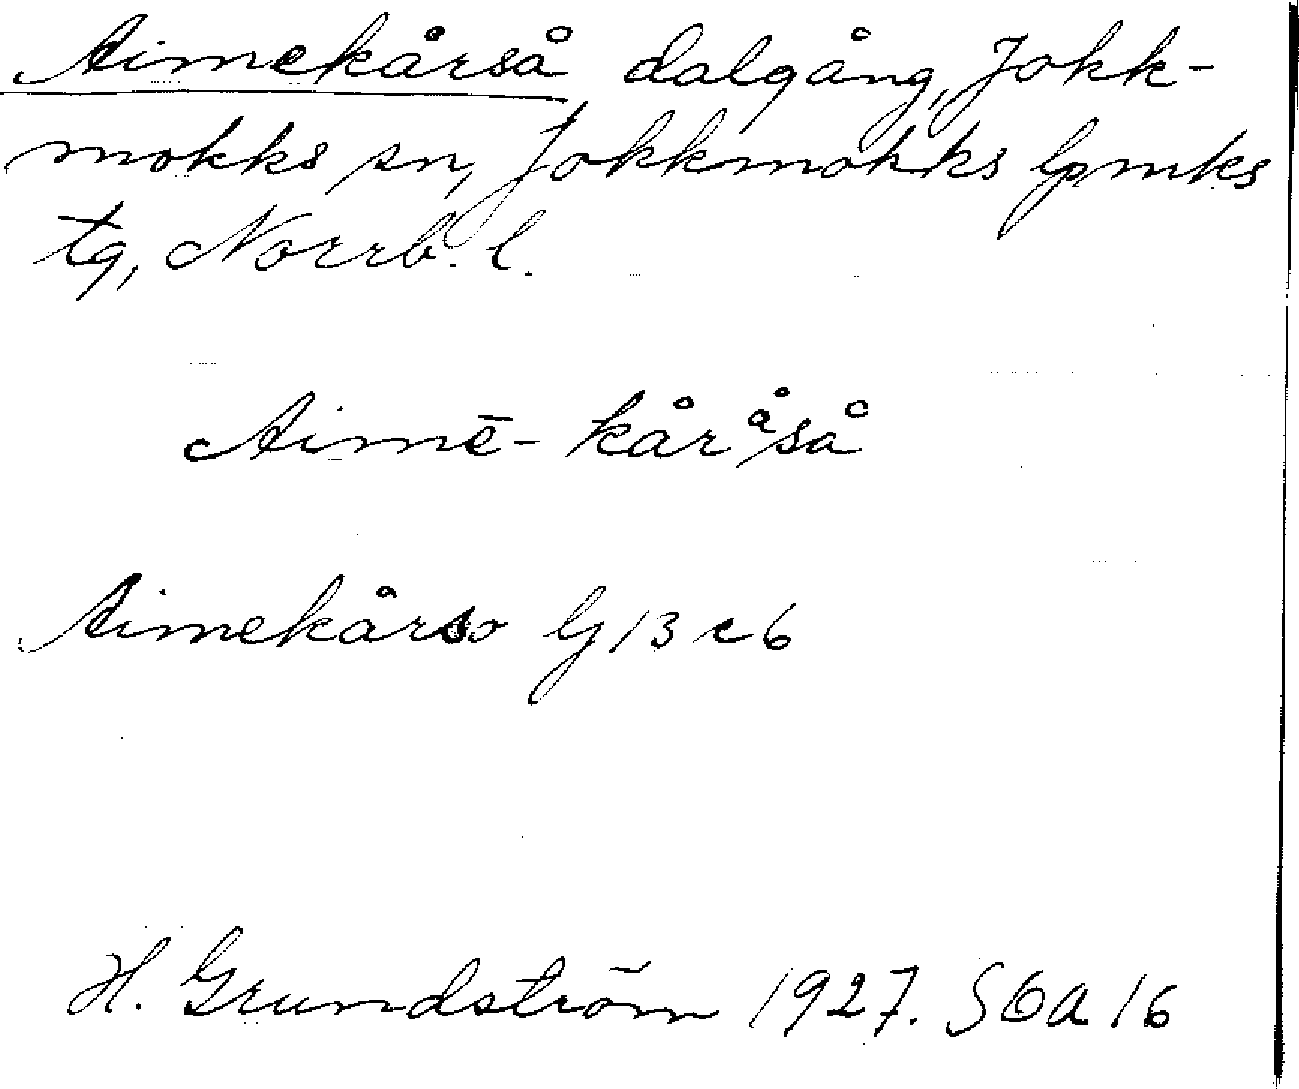 Aimekårså dalgång, Jokk-
mokks sn, Jokkmokks lpmks
tg, Norrb. l.
Aimē- kårᵃ̊så
Aimekårso G 13 c 6
H. Grundström 1927. S6a 16